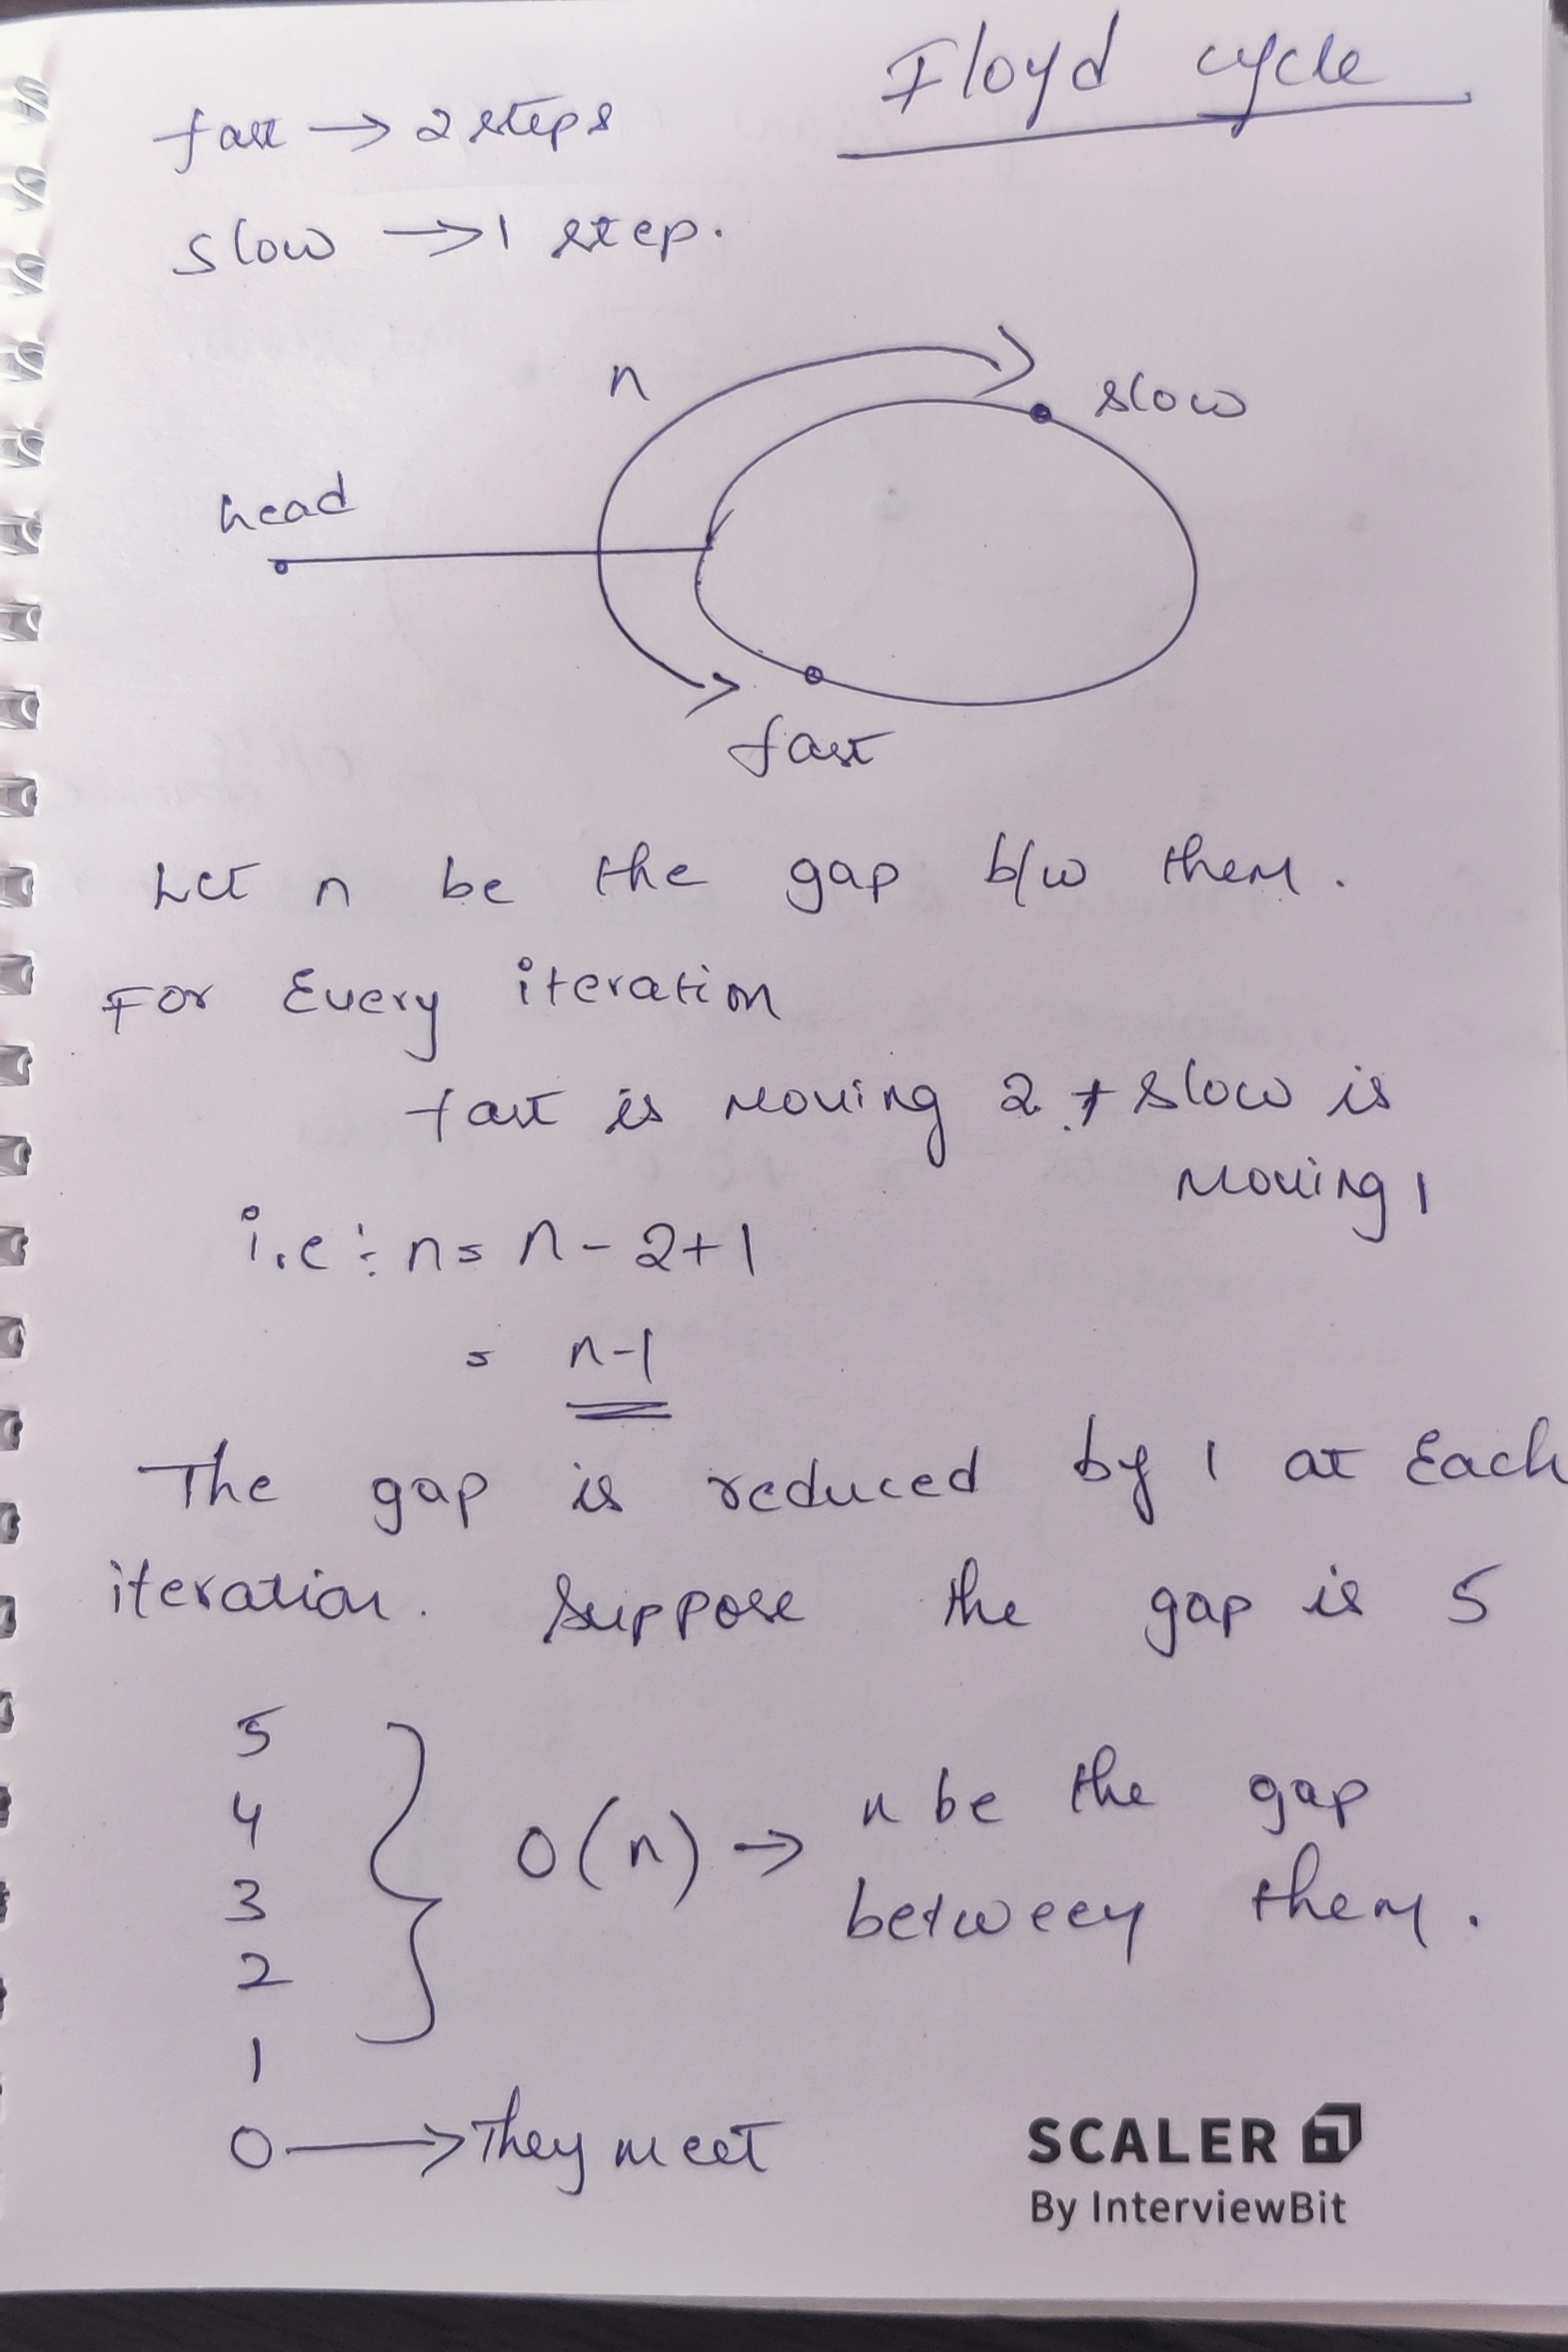 Floyd cycle
fast → 2 steps
slow → 1 step.
n
slow
head
fast
Let n be the gap b/w them.
For Every iteration
fast is moving 2 + slow is
moving 1
i.e ÷ n = n - 2 + 1
= n-1
The gap is reduced by 1 at Each
iteration. Suppose the gap is 5
5
4
3
2
1
O(n) → n be the gap
between them.
0 → They meet
SCALER
By InterviewBit